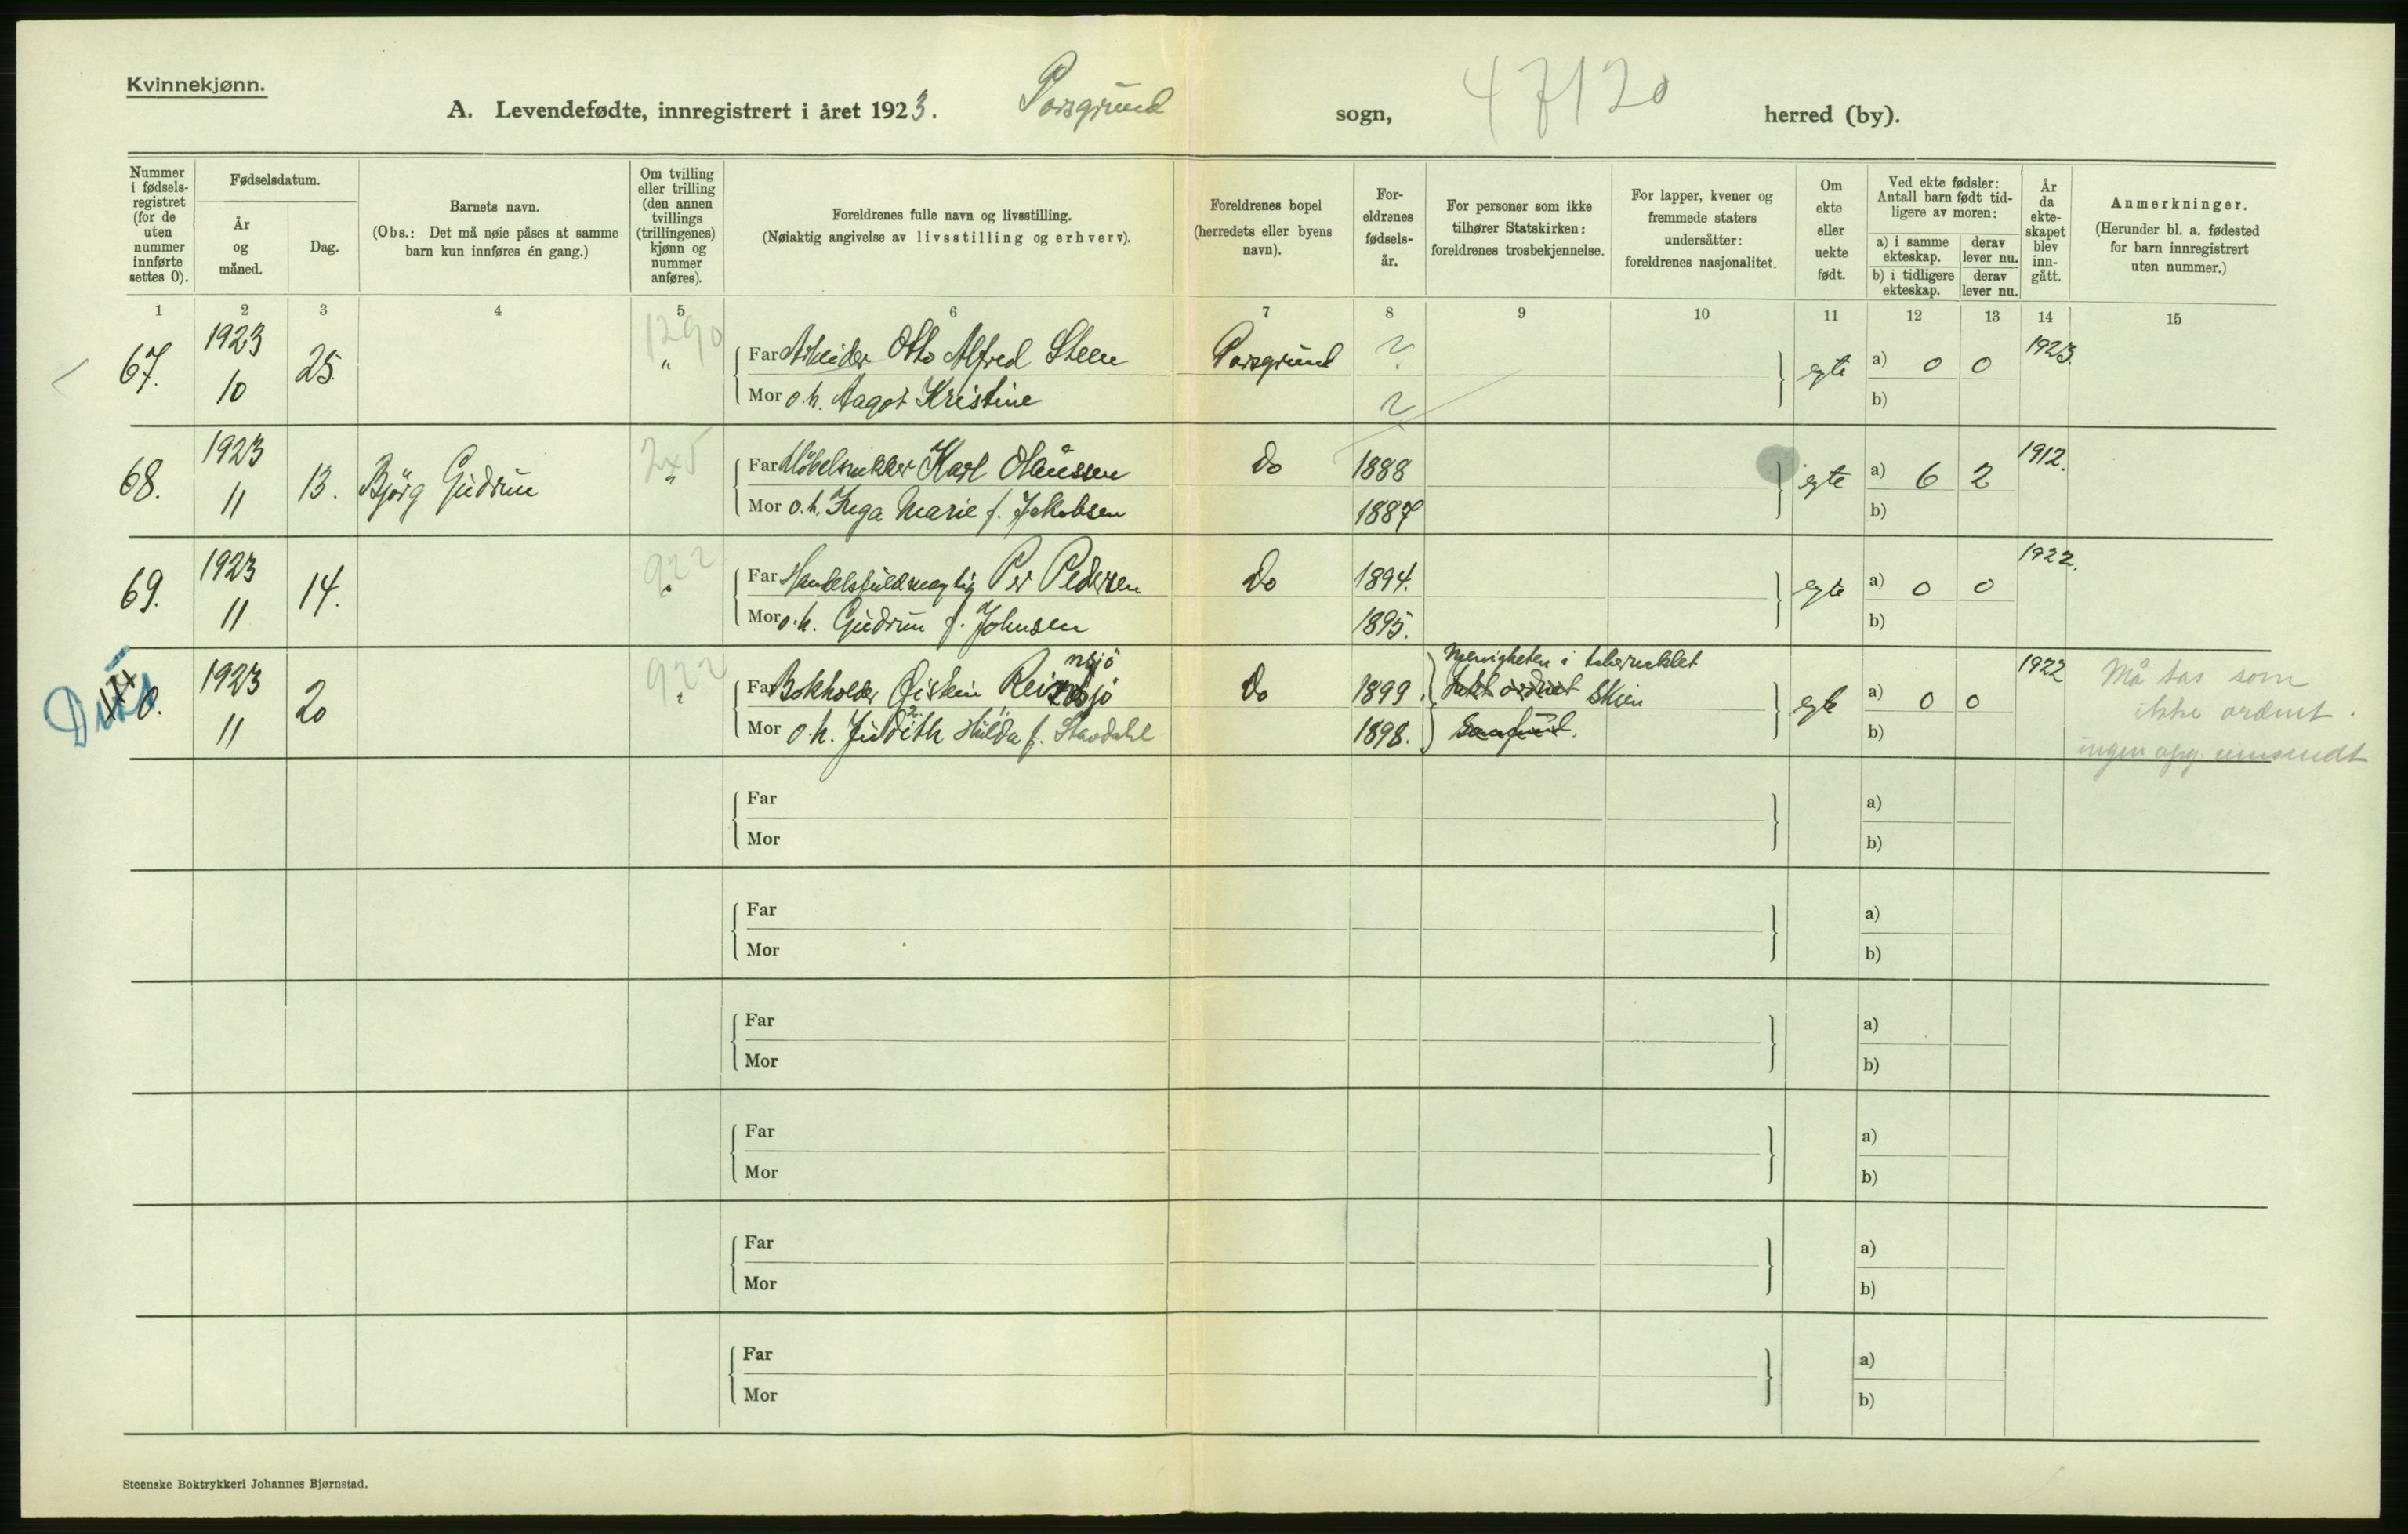 Kvinnekjønn.
A. Levendefødte, innregistrert i året 1923. Porsgrund sogn, 47120 herred (by).
Nummer i fødsels- registret (for de uten nummer innførte settes 0).
Fødselsdatum.
År og måned.
Dag.
Barnets navn.
(Obs.: Det må nøie påses at samme barn kun innføres én gang.)
Om tvilling eller trilling (den annen tvillings (trillingenes) kjønn og nummer anføres).
Foreldrenes fulle navn og livsstilling.
(Nøiaktig angivelse av livsstilling og erhverv).
Foreldrenes bopel (herredets eller byens navn).
For- eldrenes fødsels- år.
For personer som ikke tilhører Statskirken: foreldrenes trosbekjennelse.
For lapper, kvener og fremmede staters undersåtter: foreldrenes nasjonalitet.
Om ekte eller uekte født.
Ved ekte fødsler: Antall barn født tid- ligere av moren:
a) i samme ekteskap.
derav lever nu.
b) i tidligere ekteskap.
derav lever nu.
År da ekte- skapet blev inn- gått.
Anmerkninger.
(Herunder bl. a. fødested for barn innregistrert uten nummer.)
1 2 3 4 5 6 7 8 9 10 11 12 13 14 15
67. 1923 10 25. 1290 " Far Arbeider Otto Alfred Steen Porsgrund ? egte a) 0 0 1923.
Mor o.h. Aagot Kristine ? b)
68. 1923 11 13. Bjørg Gudrun 245 " Far Møbelsnekker Karl Olaussen Do 1888 egte a) 6 2 1912.
Mor o.h. Inga Marie f. Jakobsen 1887 b)
69. 1923 11 14. 922 " Far Handelsfuldmægtig Per Pedersen Do 1894. egte a) 0 0 1922.
Mor o.h. Gudrun f. Johnsen 1895. b)
0. 1923 11 20 922 " Far Bokholder Øistein Do 1899. Menigheten i tabernaklet Skien egte a) 0 0 1922 Må tas som
Mor o.h. Judith Hulda f. Stavdahl 1898. Samfund. b) ikke ordnet.
ingen opg. innsendt
Far a)
Mor b)
Far a)
Mor b)
Far a)
Mor b)
Far a)
Mor b)
Far a)
Mor b)
Far a)
Mor b)
Steenske Boktrykkeri Johannes Bjørnstad.